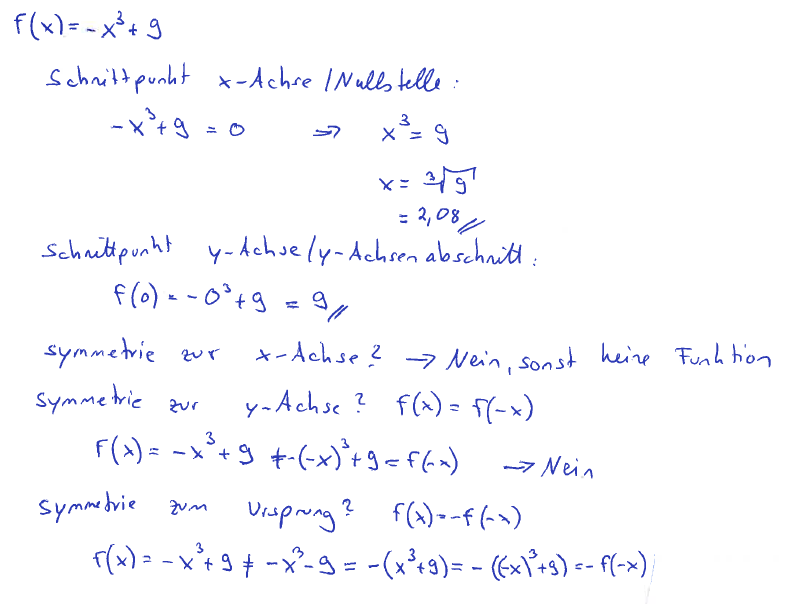 f(x) = -x³ + 9
Schnittpunkt x-Achse / Nullstelle:
-x³ + 9 = 0 ⇒ x³ = 9
x = ∛9
= 2,08
Schnittpunkt y-Achse / y-Achsenabschnitt:
f(0) = -0³ + 9 = 9
Symmetrie zur x-Achse? → Nein, sonst keine Funktion
Symmetrie zur y-Achse? f(x) = f(-x)
f(x) = -x³ + 9 ≠ -(-x)³ + 9 = f(-x) → Nein
Symmetrie zum Ursprung? f(x) = -f(-x)
f(x) = -x³ + 9 ≠ -x³ - 9 = -(x³ + 9) = -((-x)³ + 9) = -f(-x)